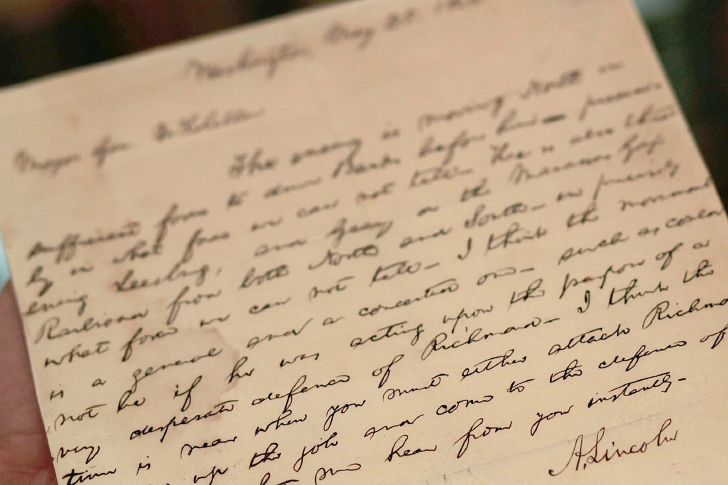 Washington, May 25. 18
Major Gen. McClellan
The enemy is moving North in
sufficient force to drive Banks before him— precise
ly in what force we can not tell— He is also threat
ening Leesburg, and Geary on the Manassas Gap
Railroad from both North and South— in precisely
what force we can not tell— I think the movement
is a general and a concerted one— such as could
not be if he was acting upon the purpose of a
very desperate defence of Richmond— I think the
time is near when you must either attack Richmo
up the job and come to the defence of
me hear from you instantly—
A. Lincoln